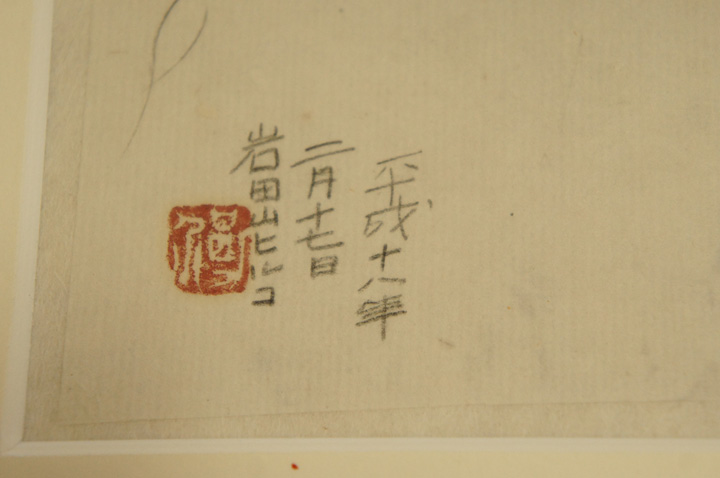 平成十八年
二月十七日
岩田山ヒルコ